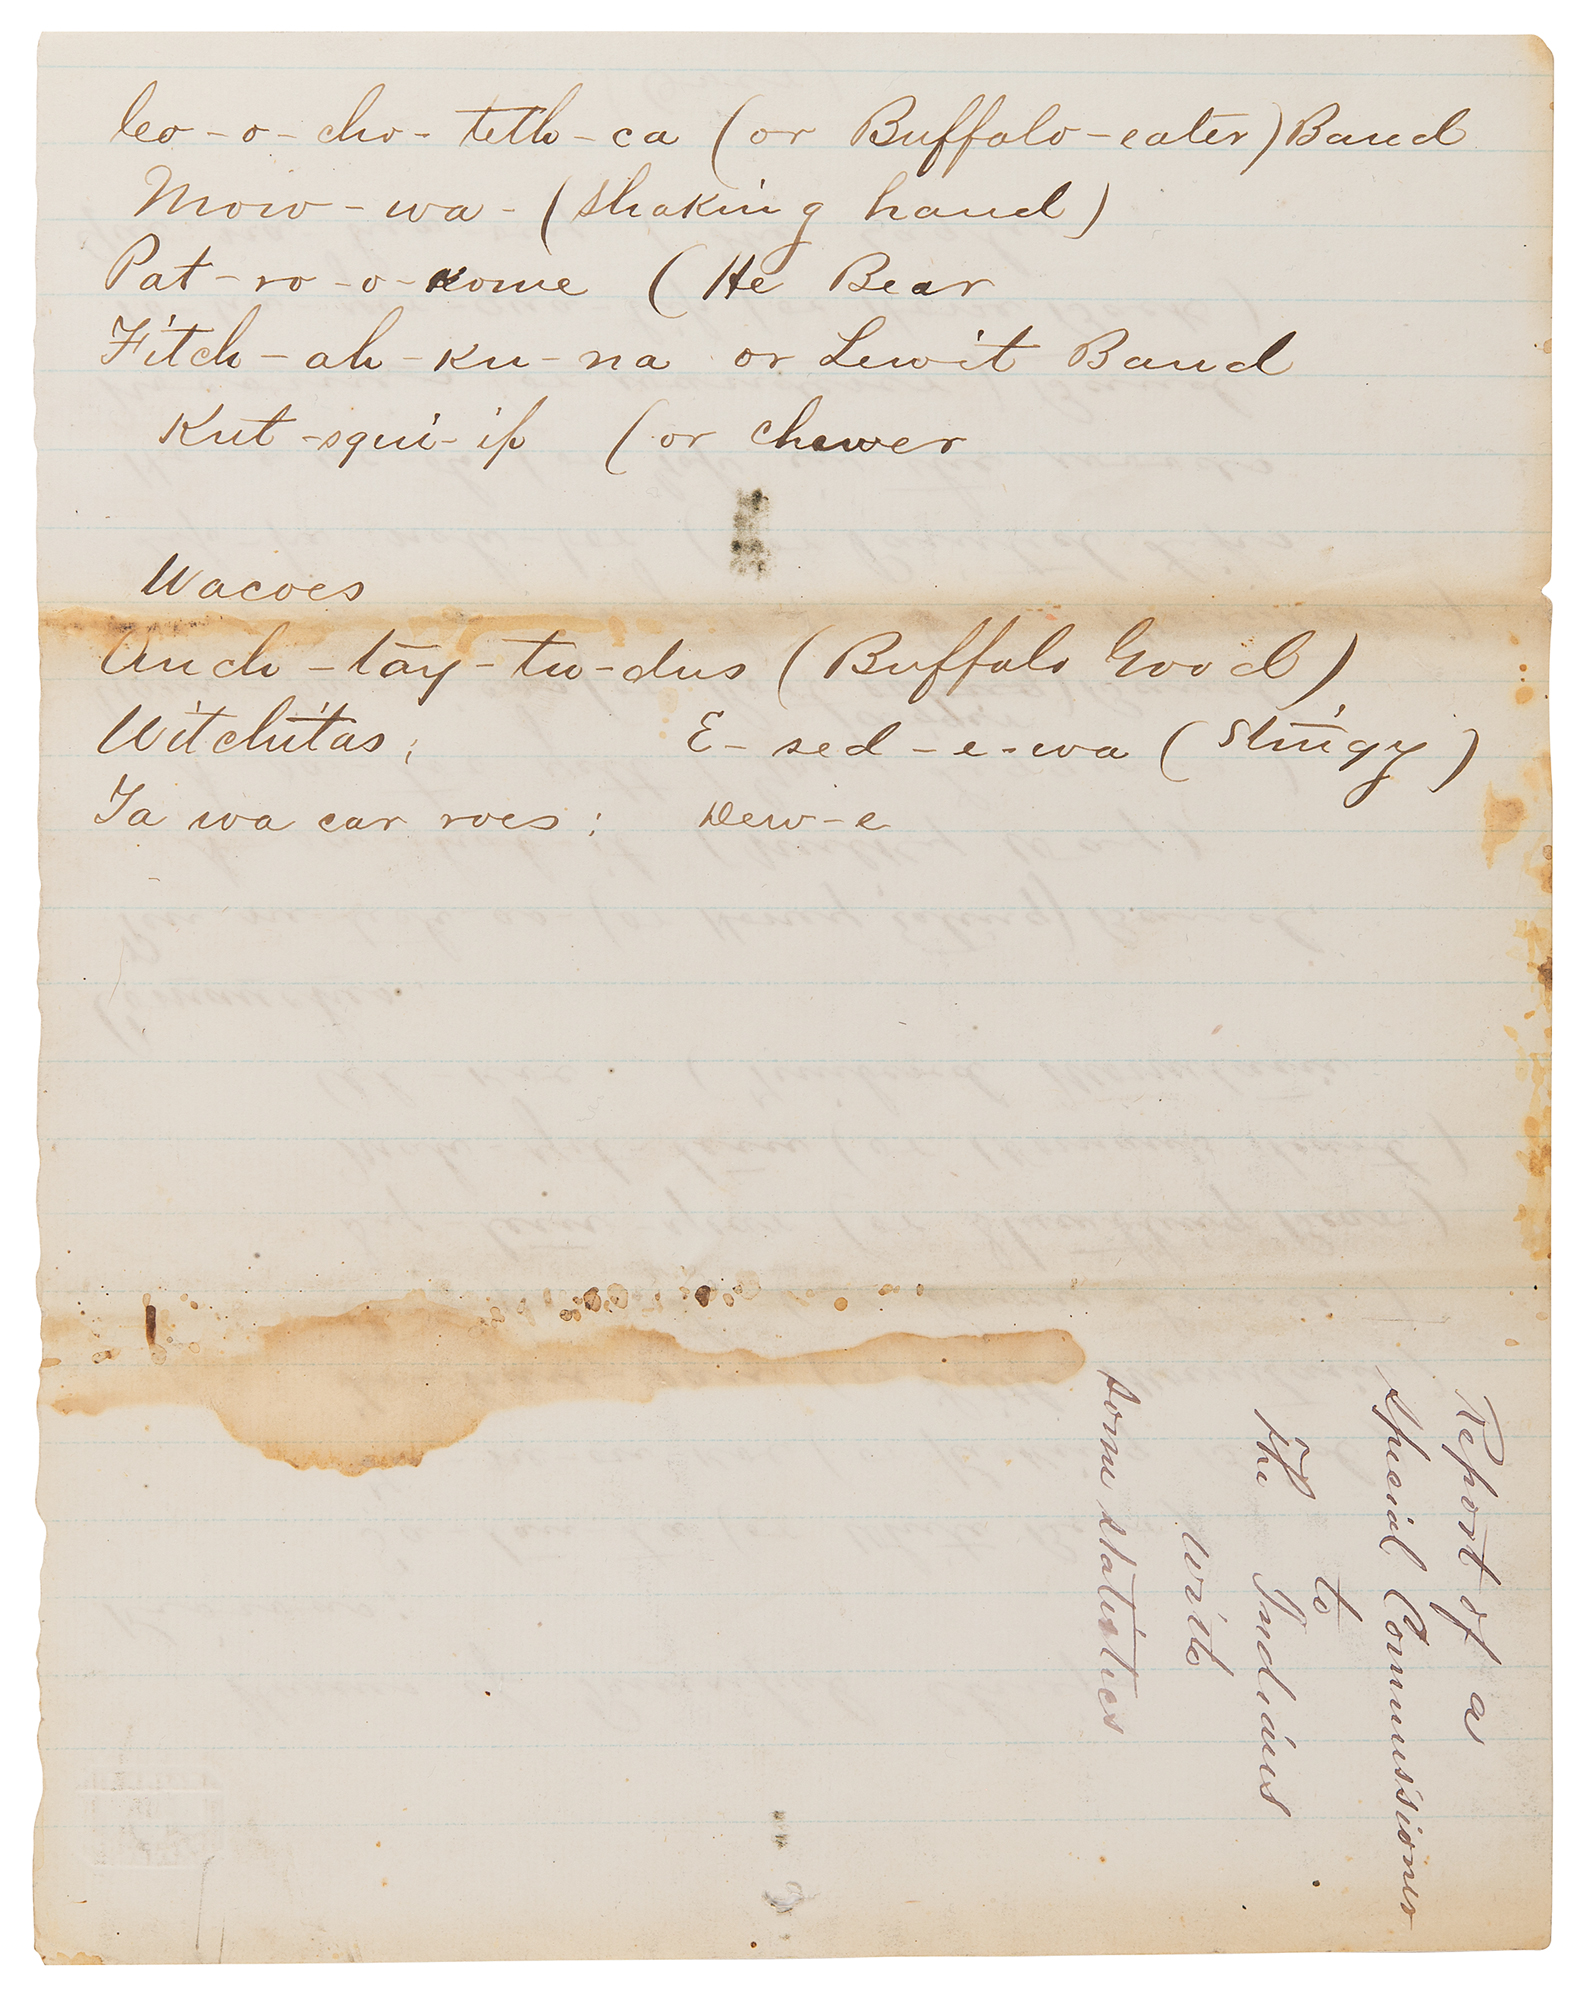 Co-o-cho-teth-ca (or Buffalo-eater) Band
Mow-wa-(Shaking hand)
Pat-ro-o-kome (He Bear
Titch-ah-ku-na or Lewit Band
Kut-squi-ip (or chewer
Wacoes
Auch-tay-tu-dus (Buffalo Good)
Witchitas; E-sed-e-wa (Stingy)
Ta wa car roes: Dew-e
Report of a
Special Commissioner
to
The Indians
with
some statistics